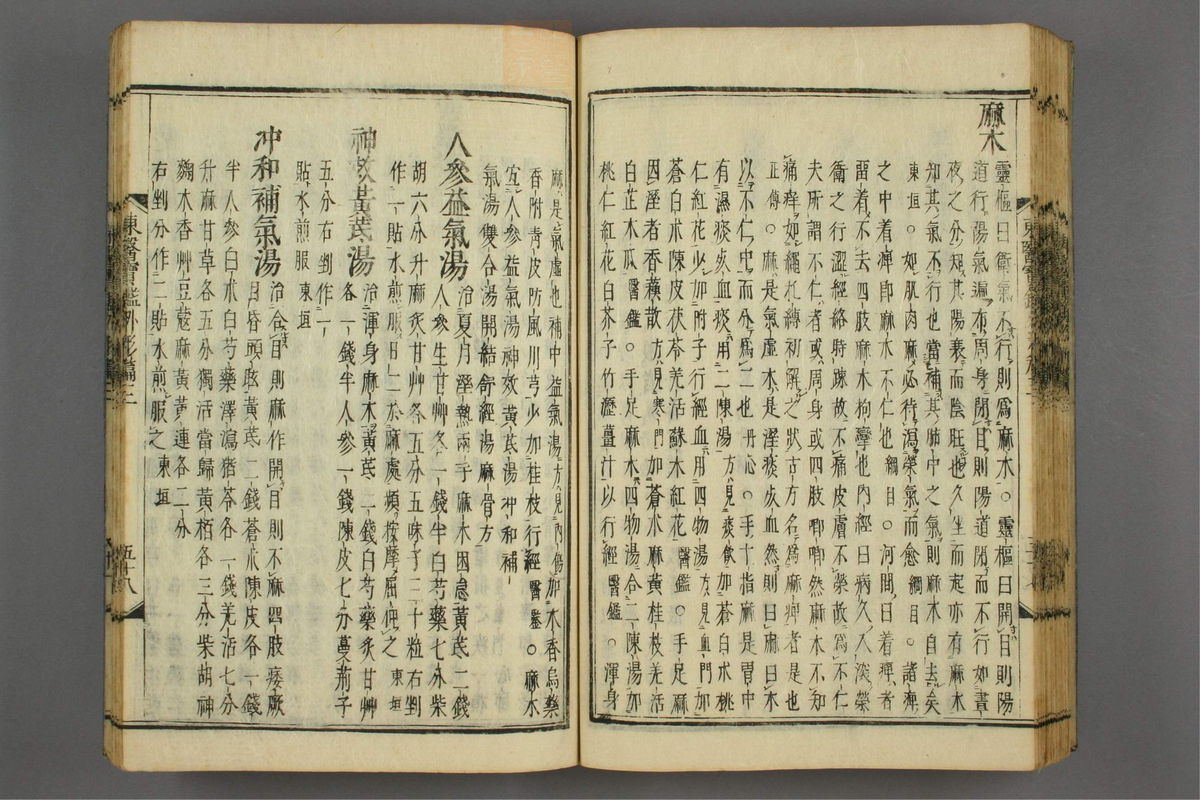 麻木
靈樞曰衛氣不行則爲麻木○靈樞曰開目則陽
道行陽氣遍布周身閉目則陽道閉而不行如晝
夜之分知其陽衰而陰旺也久坐而起亦有麻木
知其氣不行也當補其肺中之氣則麻木自去矣
東垣○如肌肉麻必待瀉榮氣而愈綱目○諸痺
之中着痺卽麻木不仁也綱目○河間曰着痺者
留着不去四肢麻木拘攣也內經曰病久入深榮
衛之行澁經絡時踈故不痛皮膚不榮故爲不仁
夫所謂不仁者或周身或四肢唧唧然麻木不知
痛痒如繩扎縛初解之狀古方名爲麻痺者是也
正傳○麻是氣虛木是濕痰死血然則曰麻曰木
以不仁中而分爲二也丹心○手十指麻是胃中
有濕痰死血痰用二陳湯方見痰飮加蒼白朮桃
仁紅花少加附子行經血用四物湯方見血門加
蒼白朮陳皮茯苓羌活蘇木紅花醫鑑○手足麻
因濕者香蘇散方見寒門加蒼朮麻黃桂枝羌活
白芷木瓜醫鑑○手足麻木四物湯合二陳湯加
桃仁紅花白芥子竹瀝薑汁以行經醫鑑○渾身
麻是氣虛也補中益氣湯方見內傷加木香烏藥
香附靑皮防風川芎少加桂枝行經醫鑑○麻木
宜人參益氣湯神效黃芪湯冲和補
氣湯雙合湯開結舒經湯麻骨方
人參益氣湯
治夏月濕熱兩手麻木困怠黃芪二錢
人參生甘艸各一錢半白芍藥七分柴
胡六分升麻炙甘艸各五分五味子三十粒右剉
作一貼水煎服日二次麻處頻按摩屈伸之東垣
神效黃芪湯
治渾身麻木黃芪二錢白芍藥炙甘艸
各一錢半人參一錢陳皮七分蔓荊子
五分右剉作一
貼水煎服東垣
冲和補氣湯
治合目則麻作開目則不麻四肢痿厥
目昏頭眩黃芪二錢蒼朮陳皮各一錢
半人參白朮白芍藥澤瀉猪苓各一錢羌活七分
升麻甘草各五分獨活當歸黃栢各三分柴胡神
麴木香艸豆蔲麻黃黃連各二分
右剉分作二貼水煎服之東垣
東醫寶鑑外形編
五十八